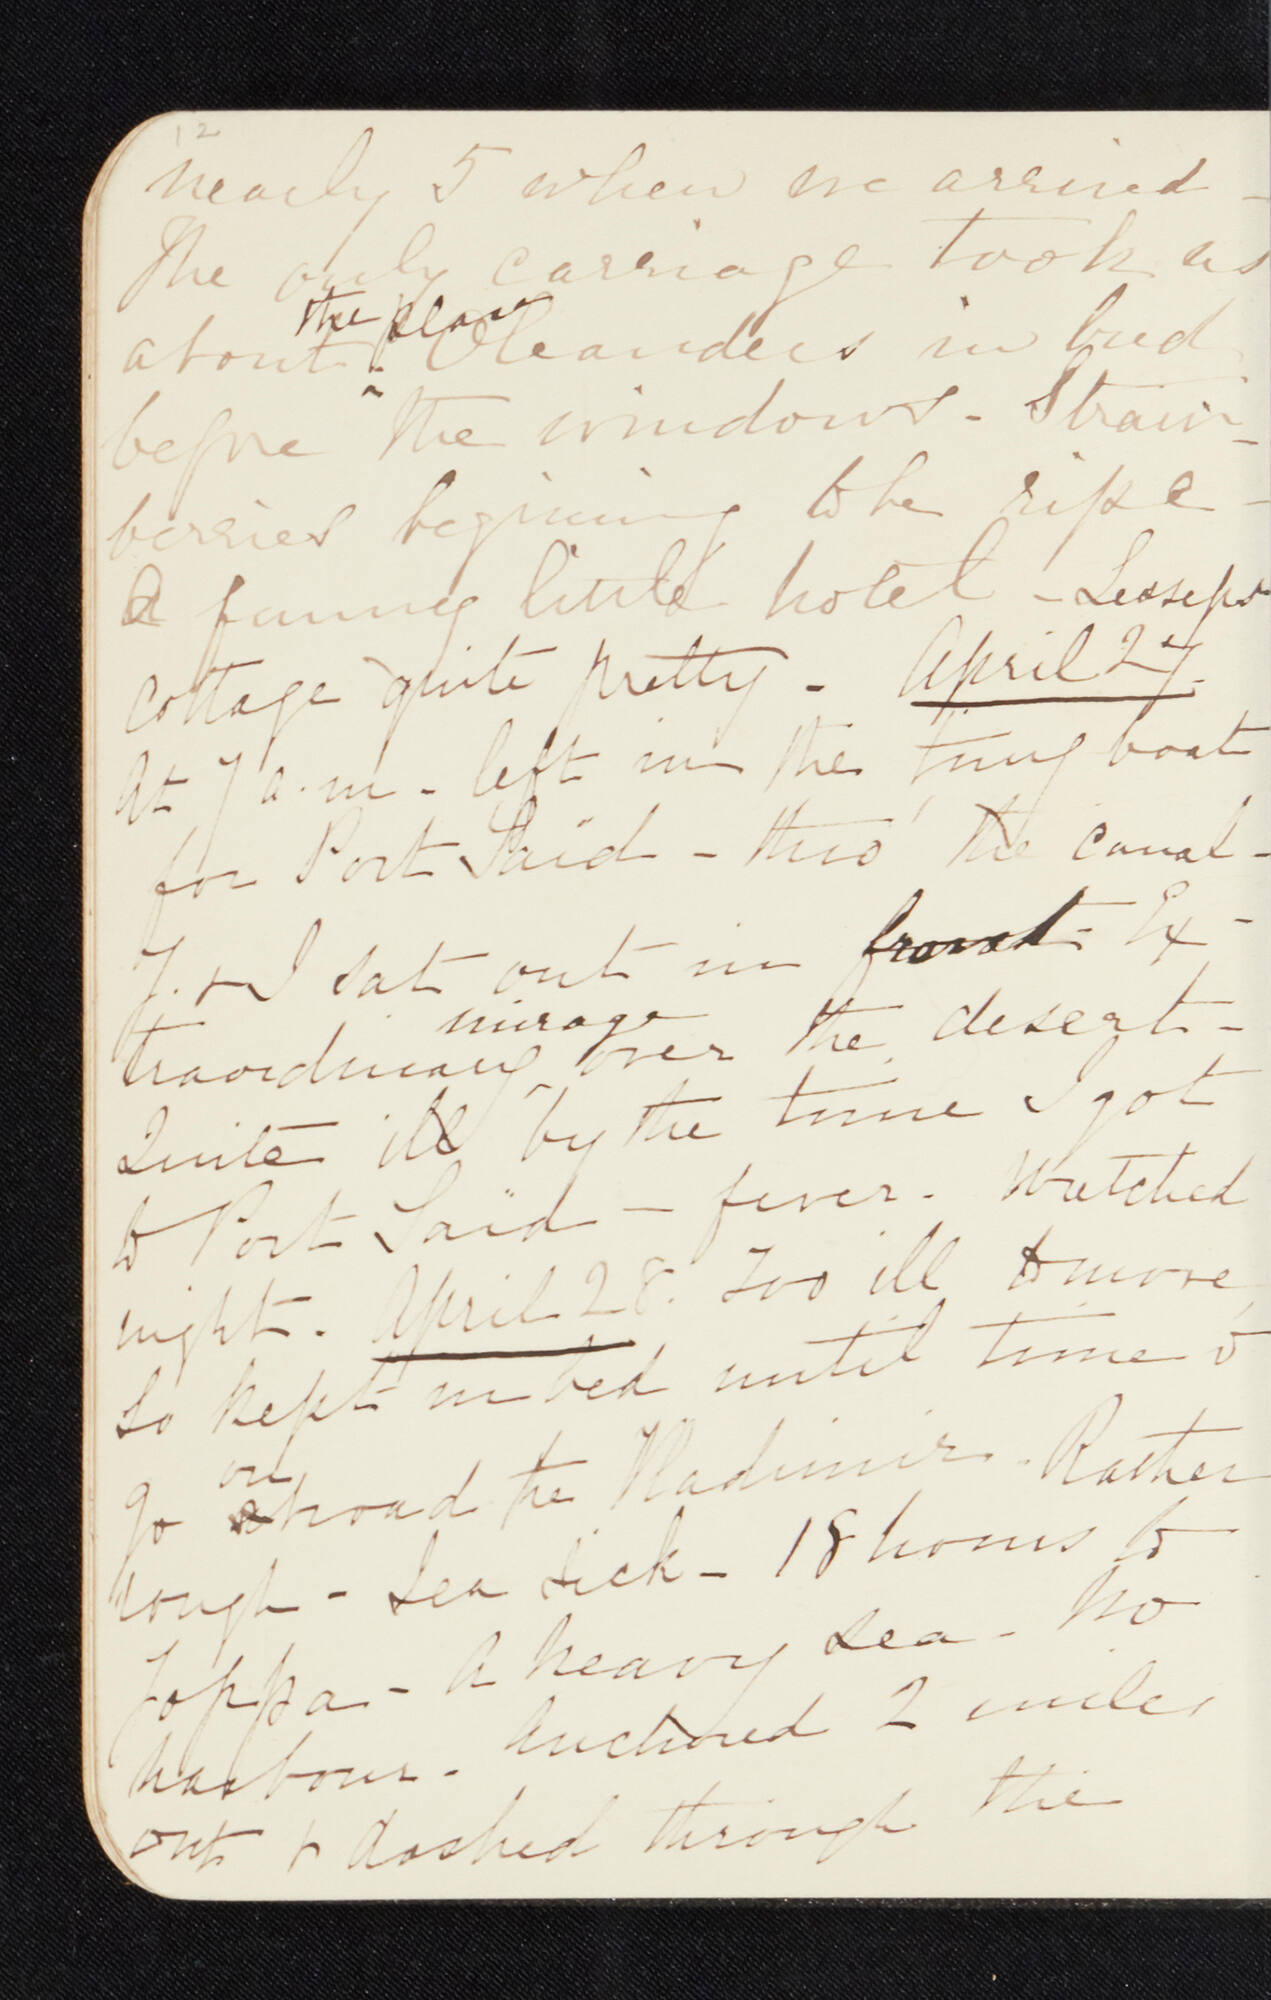 12
nearly 5 when we arrived -
The only carriage took us
the place
about. Oleanders in bud
before the windows - Straw-
berries begining to be ripe -
A funny little hotel - Lesseps
cottage quite pretty - April 27.
At 7 a.m. - left in the tung boat
for Port Saïd - thro' the canal -
J. & I sat out in front - Ex-
mirage
traordinary over the desert -
Quite ill by the time I got
to Port Saïd - fever. Wretched
night. April 28. Too ill to move,
So kept in bed until time to
on
go aboard the Vladimir. Rather
rough - Sea sick - 18 hours to
Joppa - A heavy sea - No
harbour - Anchored 2 miles
out & dashed through the